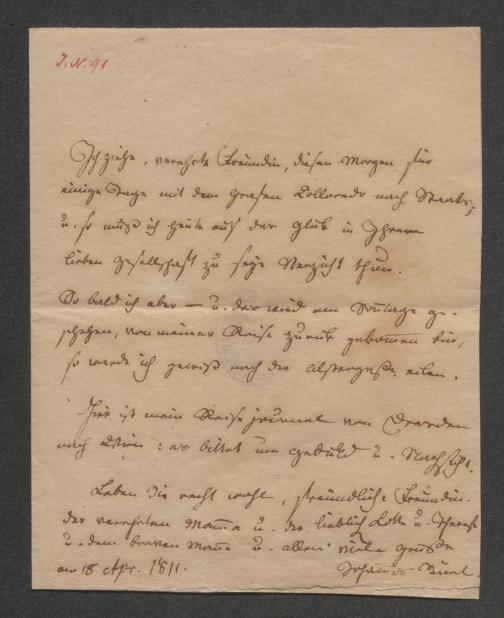 J. N. 91
Ich ziehe, verehrte Freundin, diesen Morgen für
einige Tage mit dem Grafen Colloredo nach Staatz,
u. so muß ich heute auf das Glük in Ihrer
lieben Gesellschaft zu seyn Verzicht thun.
So bald ich aber – u. das wird am Sontage ge-
schehen, von meiner Reise zurük gekommen bin,
so werde ich gewiß nach der Alstergasse eilen.
Hier ist mein Reisejournal von Dresden
nach Wien: es bittet um Geduld u. Nachsicht.
Leben Sie recht wohl, freundliche Freundin.
der verehrten Mama u. der lieblich Lotte u.
u. dem braven Manne u. allen viele Grüße
am 18 Apr. 1811. Johannes Büel.